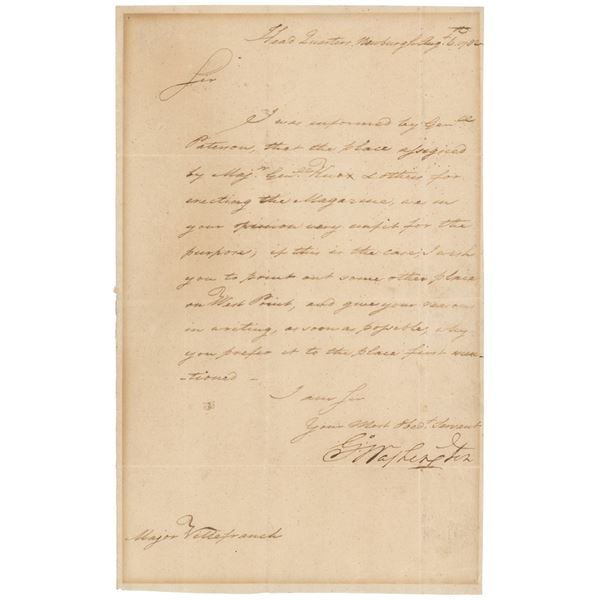 Head Quarters Newburgh Augt. 6th 1782
Sir
I was informed by Genl.
Paterson, that the place assigned
by Majr. Genl. Knox & others for
erecting the Magazine, was in
your opinion very unfit for the
purpose; if this is the case, I wish
you to point out some other place
on West Point, and give your reasons
in writing, as soon as possible, why
you prefer it to the place first men-
-tioned -
I am Sir
Your Most Obedt. Servant
Go Washington
Major Villefranch